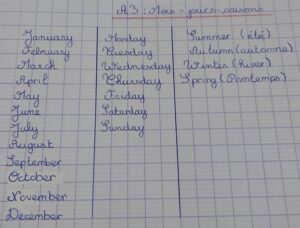 A3 : Mois - jours - saisons
January Monday Summer (été)
February Tuesday Autumn (automne)
March Wednesday Winter (hiver)
April Thursday Spring (Printemps)
May Friday
June Saturday
July Sunday
August
September
October
November
December